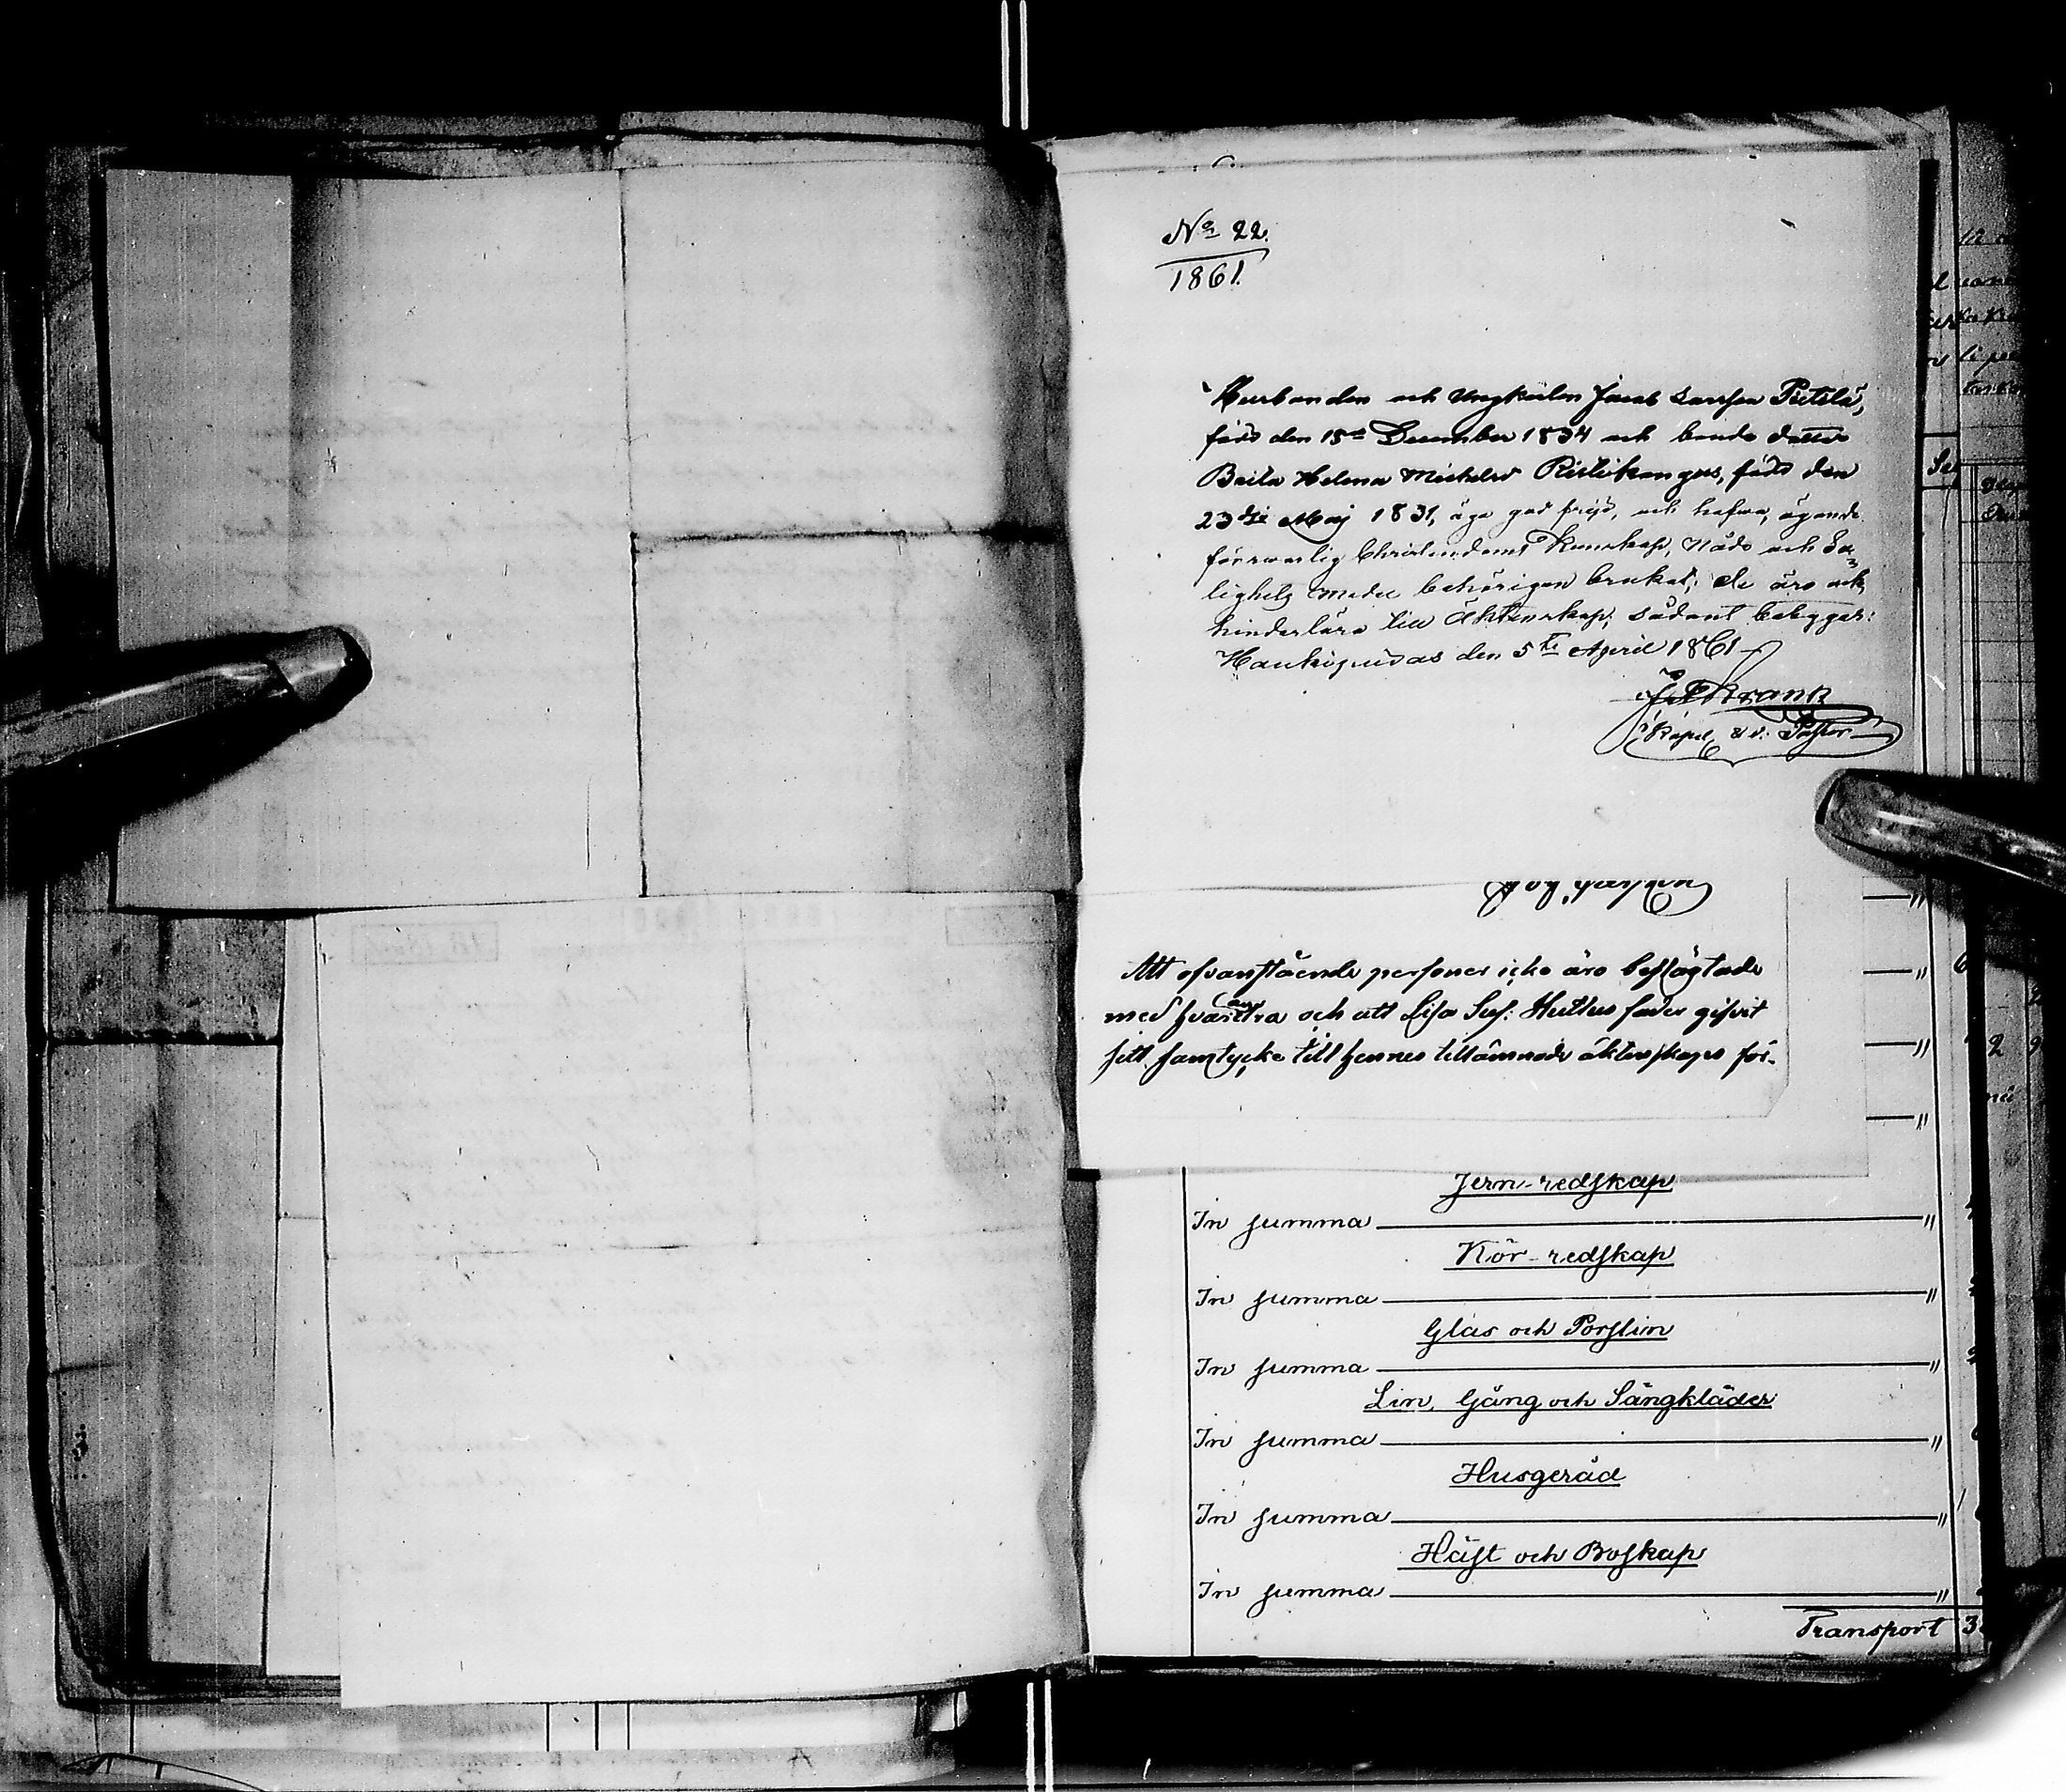 No 22.
1861.
Husbonden och Ungkarlen Jacob Larsson Pietilä,
född den 15de December 1834 och bonde dotter
Brita Helena Michelsd Ristikangas, född den
23dje Maj 1831, äga god frejd, och hafva, ägande
försvarlig Christendoms kunskap, Nåde och Sa-
lighets medel behörigen brukat; de äro ock
hinderlösa till Äktenskap, sådant betygar:
Haukipudas den 5te April 1861
Krank
Kapel. & v. Pastor
Att ofvanstående personer icke äro beslägtade
med hvarandra och att Lisa Sus: Huttus fader gifvit
sitt samtycke till hennes tillämnade äktenskaps för-
Jern-redskap
In summa "
Kör-redskap
In summa "
Glas och Porslin
In summa "
Lin, Gång och Sängkläder
In summa "
Husgeråd
In summa "
Häst och Boskap
In summa "
Transport 3